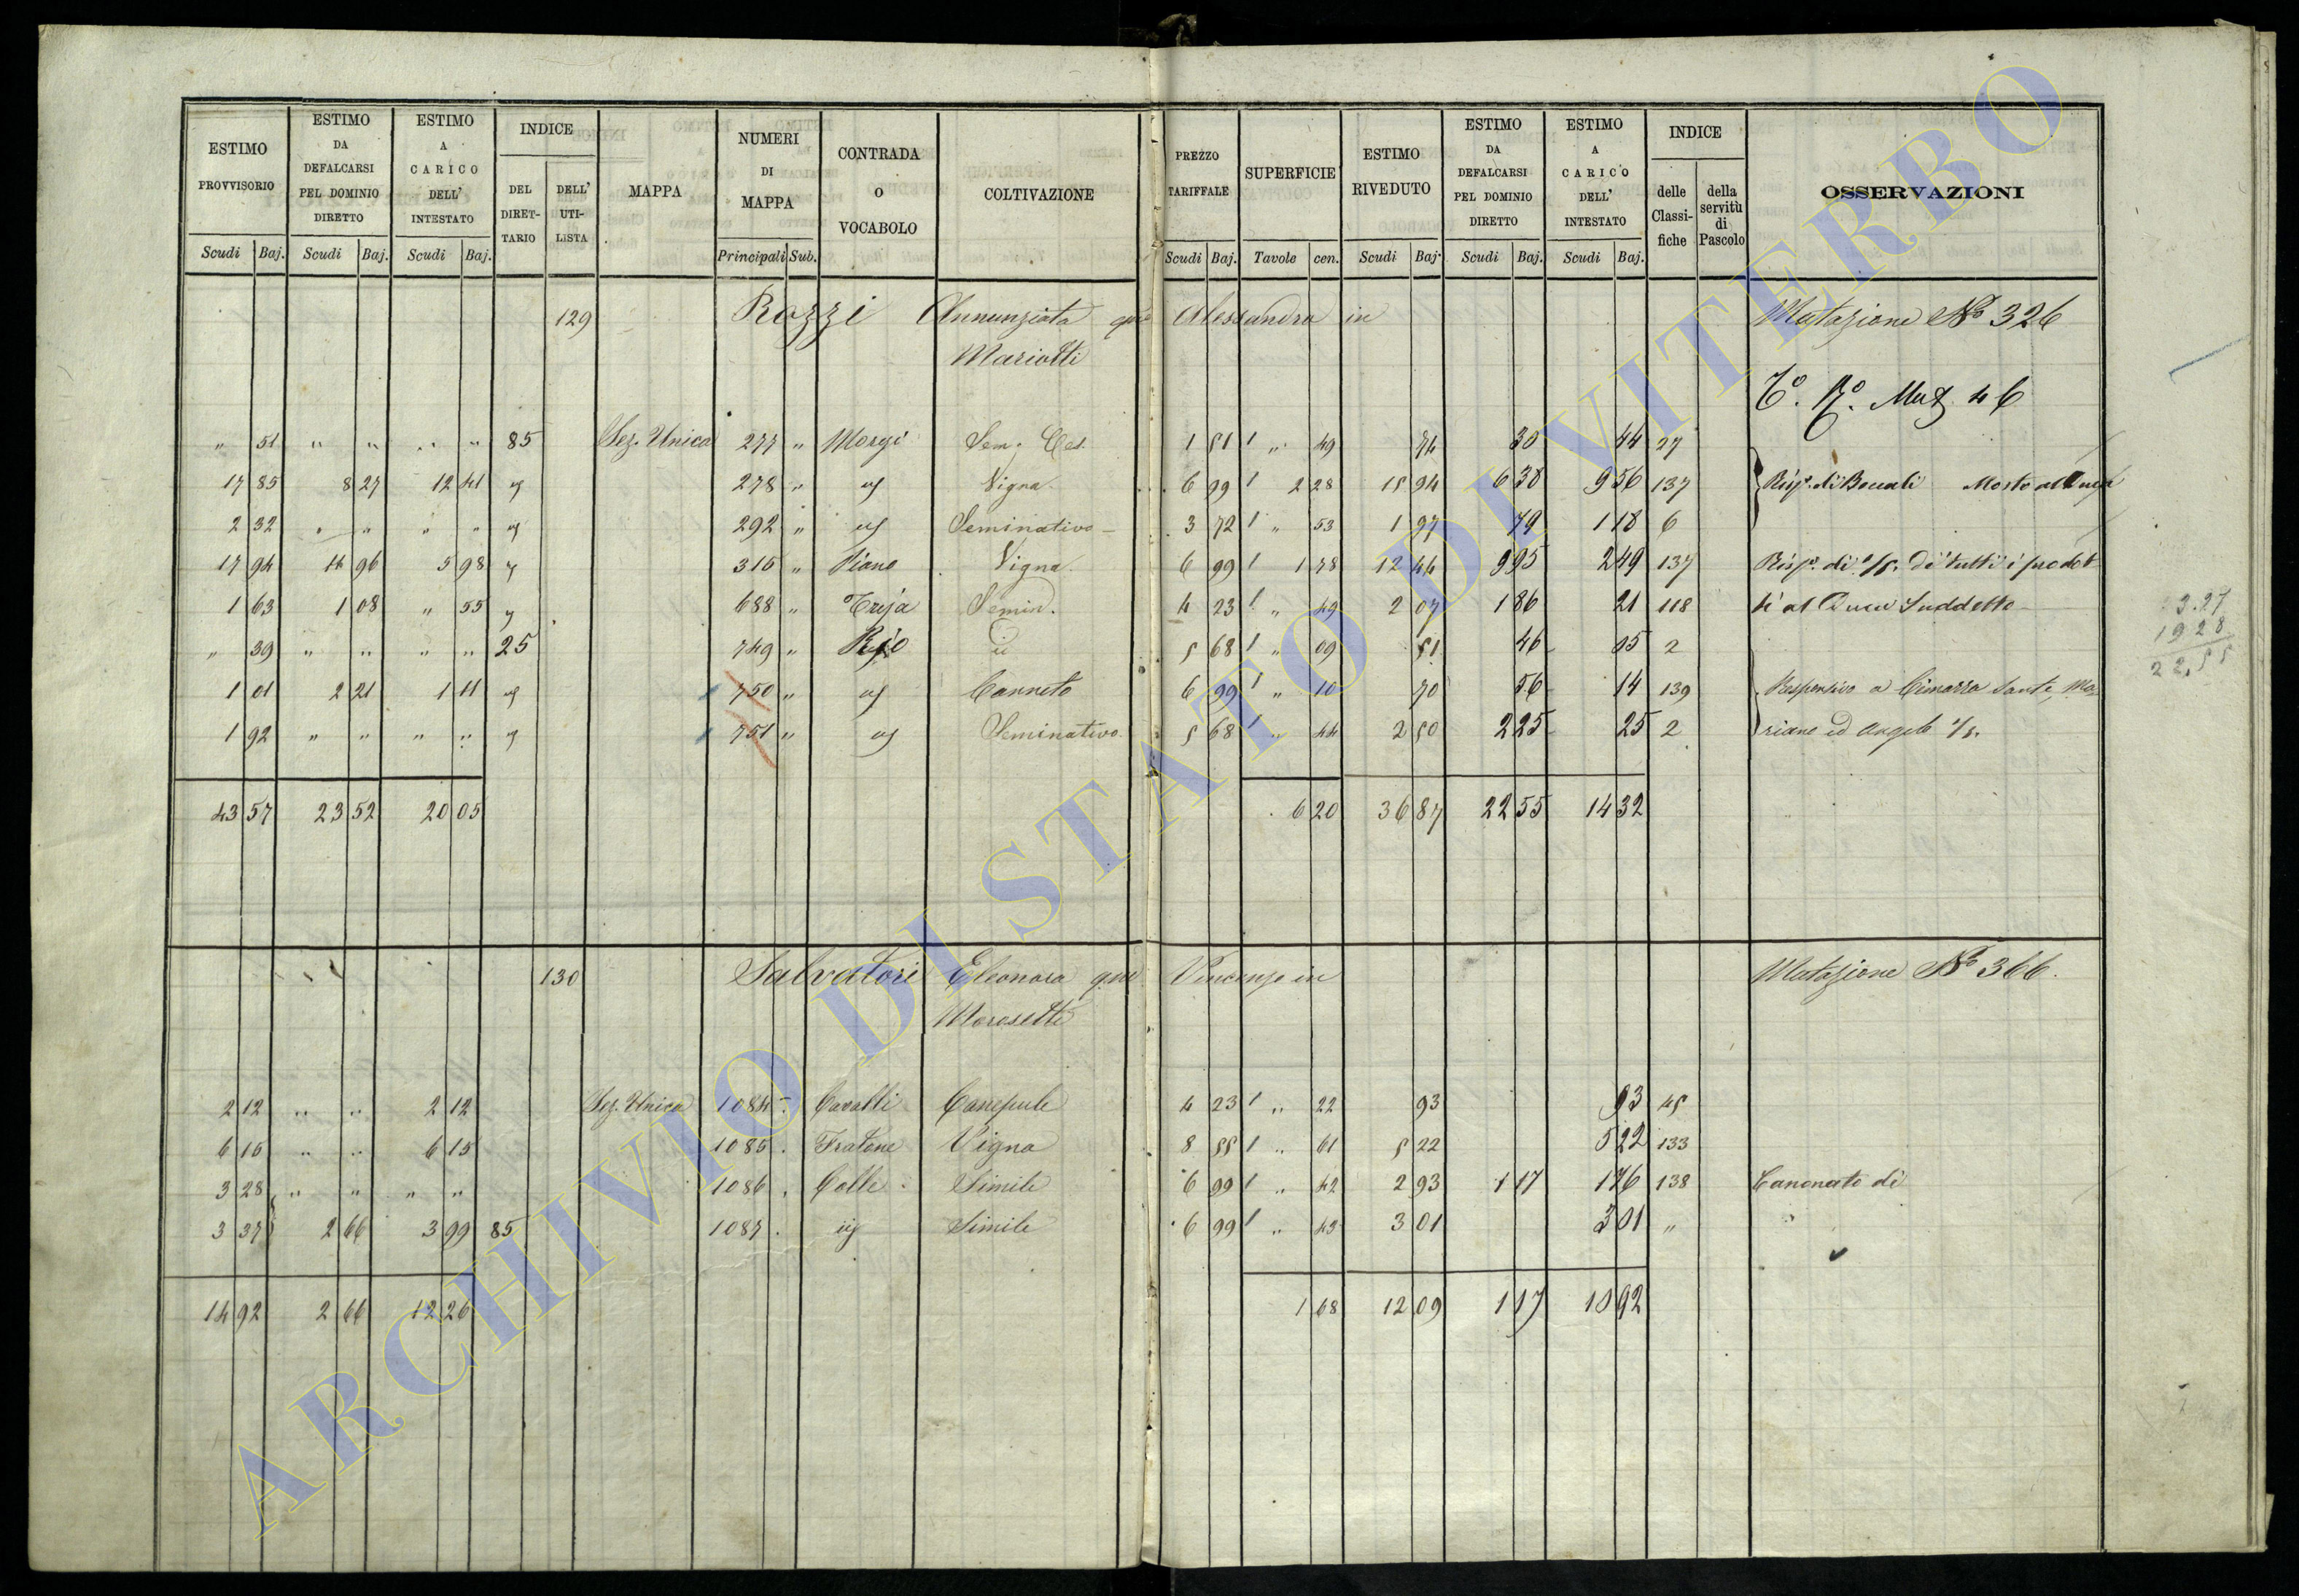 ESTIMO PROVVISORIO | ESTIMO DA DEFALCARSI PEL DOMINIO DIRETTO | ESTIMO A CARICO DELL' INTESTATO | INDICE | MAPPA | NUMERI DI MAPPA | CONTRADA O VOCABOLO | COLTIVAZIONE | PREZZO TARIFFALE | SUPERFICIE | ESTIMO RIVEDUTO | ESTIMO DA DEFALCARSI PEL DOMINIO DIRETTO | ESTIMO A CARICO DELL' INTESTATO | INDICE | OSSERVAZIONI
DEL DIRETTARIO | DELL' UTILISTA | delle Classifiche | della servitù di Pascolo
Scudi | Baj. | Scudi | Baj. | Scudi | Baj. | Principali | Sub. | Scudi | Baj. | Tavole | cen. | Scudi | Baj. | Scudi | Baj. | Scudi | Baj.
129 Rozzi Annunziata qm Alessandro in Mutazione No 326
Mariotti
Mut 46
" 51 " " " " 85 Sez. Unica 277 " Morgi Sem. 1 51 " 49 74 30 44 27
17 85 8 27 12 41 278 " Vigna 6 99 2 28 15 94 6 38 9 56 137 Risp. di Boccali Mosto al Duca
2 32 " " " " 292 " Seminativo 3 72 " 53 1 97 79 1 18 6
17 94 11 96 5 98 316 " Piano Vigna 6 99 1 78 12 44 9 95 2 49 137 Risp. di 1/5. di tutti i prodot
1 63 1 08 " 55 688 " Treja Semin. 4 23 " 49 2 07 1 86 21 118 ti al Duca Suddetto
" 39 " " " " 25 749 " Rio 5 68 " 09 51 46 05 2
1 01 2 21 1 11 750 " Canneto 6 99 " 10 70 56 14 139 Responsivo a Cimarra Sante, Ma
1 92 " " " " 751 " Seminativo 5 68 " 44 2 50 2 25 25 2 riano ed Angelo 1/5.
3.27
19 28
22,55
43 57 23 52 20 05 6 20 36 87 22 55 14 32
130 Salvatori Eleonora qm Vincenzo in Mutazione No 366.
Morosetti
2 12 " " 2 12 Sez. Unica 1084 Cavalli Canepule 4 23 " 22 93 93 45
6 15 " " 6 15 1085 Fratone Vigna 8 55 " 61 5 22 5 22 133
3 28 " " " " 1086 Colle Simile 6 99 " 42 2 93 1 17 1 76 138 Canonato di
3 37 2 66 3 99 85 1087 Simile 6 99 " 43 3 01 3 01 "
14 92 2 66 12 26 1 68 12 09 1 17 10 92
ARCHIVIO DI STATO DI VITERBO